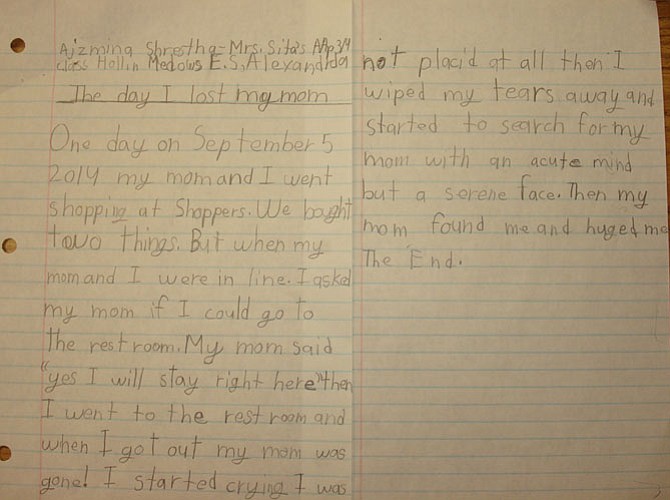 Ajzmina Shrestha-Mrs. Sita's AAP3/4
class Hollin Medows E.S, Alexandria
The day I lost my mom
One day on September 5
2014 my mom and I went
shopping at Shoppers. We bought
two things. But when my
mom and I were in line. I asked
my mom if I could go to
the restroom. My mom said
"yes I will stay right here" then
I went to the restroom and
when I got out my mom was
gone! I started crying I was
not placid at all then I
wiped my tears away and
started to search for my
mom with an acute mind
but a serene face. Then my
mom found me and huged me
The End.